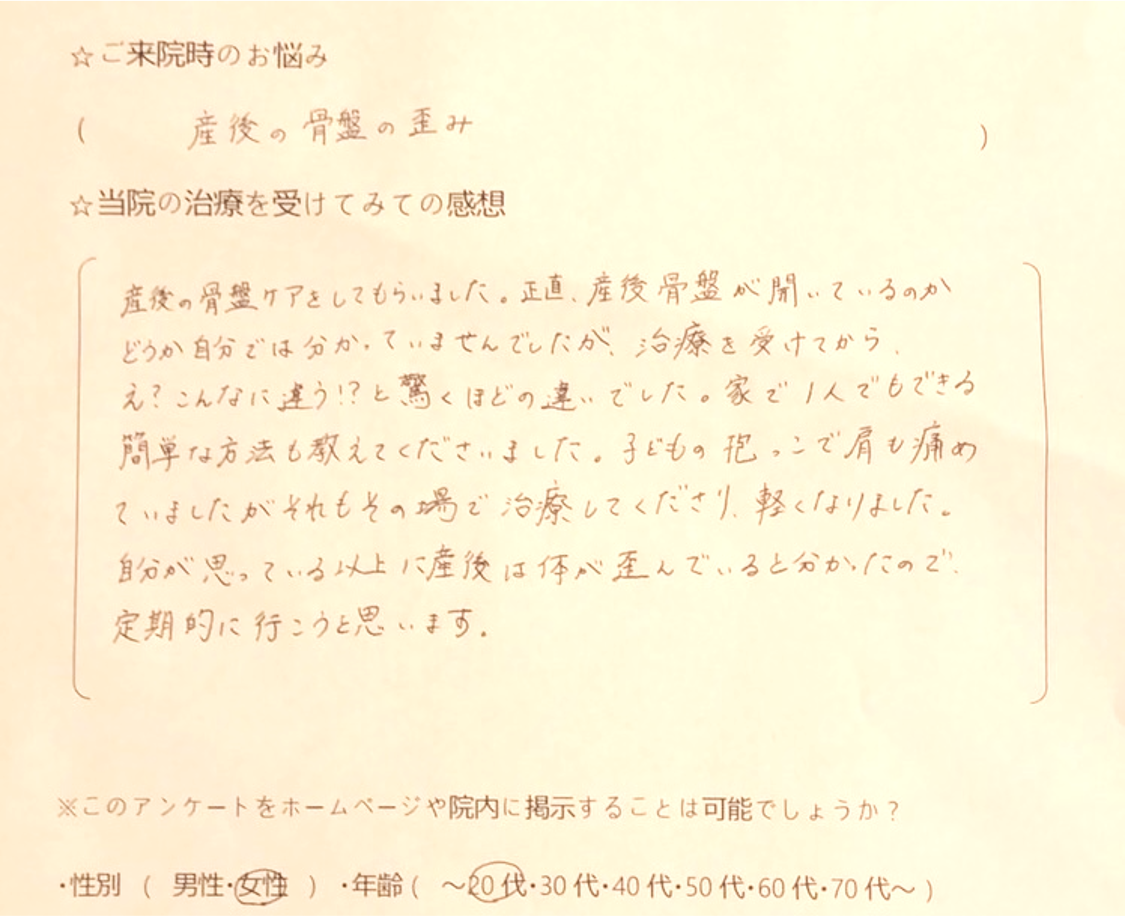 ☆ご来院時のお悩み
( 産後の骨盤の歪み )
☆当院の治療を受けてみての感想
産後の骨盤ケアをしてもらいました。正直、産後骨盤が開いているのか
どうか自分では分かっていませんでしたが、治療を受けてから、
え?こんなに違う!?と驚くほどの違いでした。家で1人でもできる
簡単な方法も教えてくださいました。子どもの抱っこで肩も痛め
ていましたがそれもその場で治療してくださり、軽くなりました。
自分が思っている以上に産後は体が歪んでいると分かったので、
定期的に行こうと思います。
※このアンケートをホームページや院内に掲示することは可能でしょうか?
・性別 ( 男性・女性 ) ・年齢 ( ～20代・30代・40代・50代・60代・70代～ )